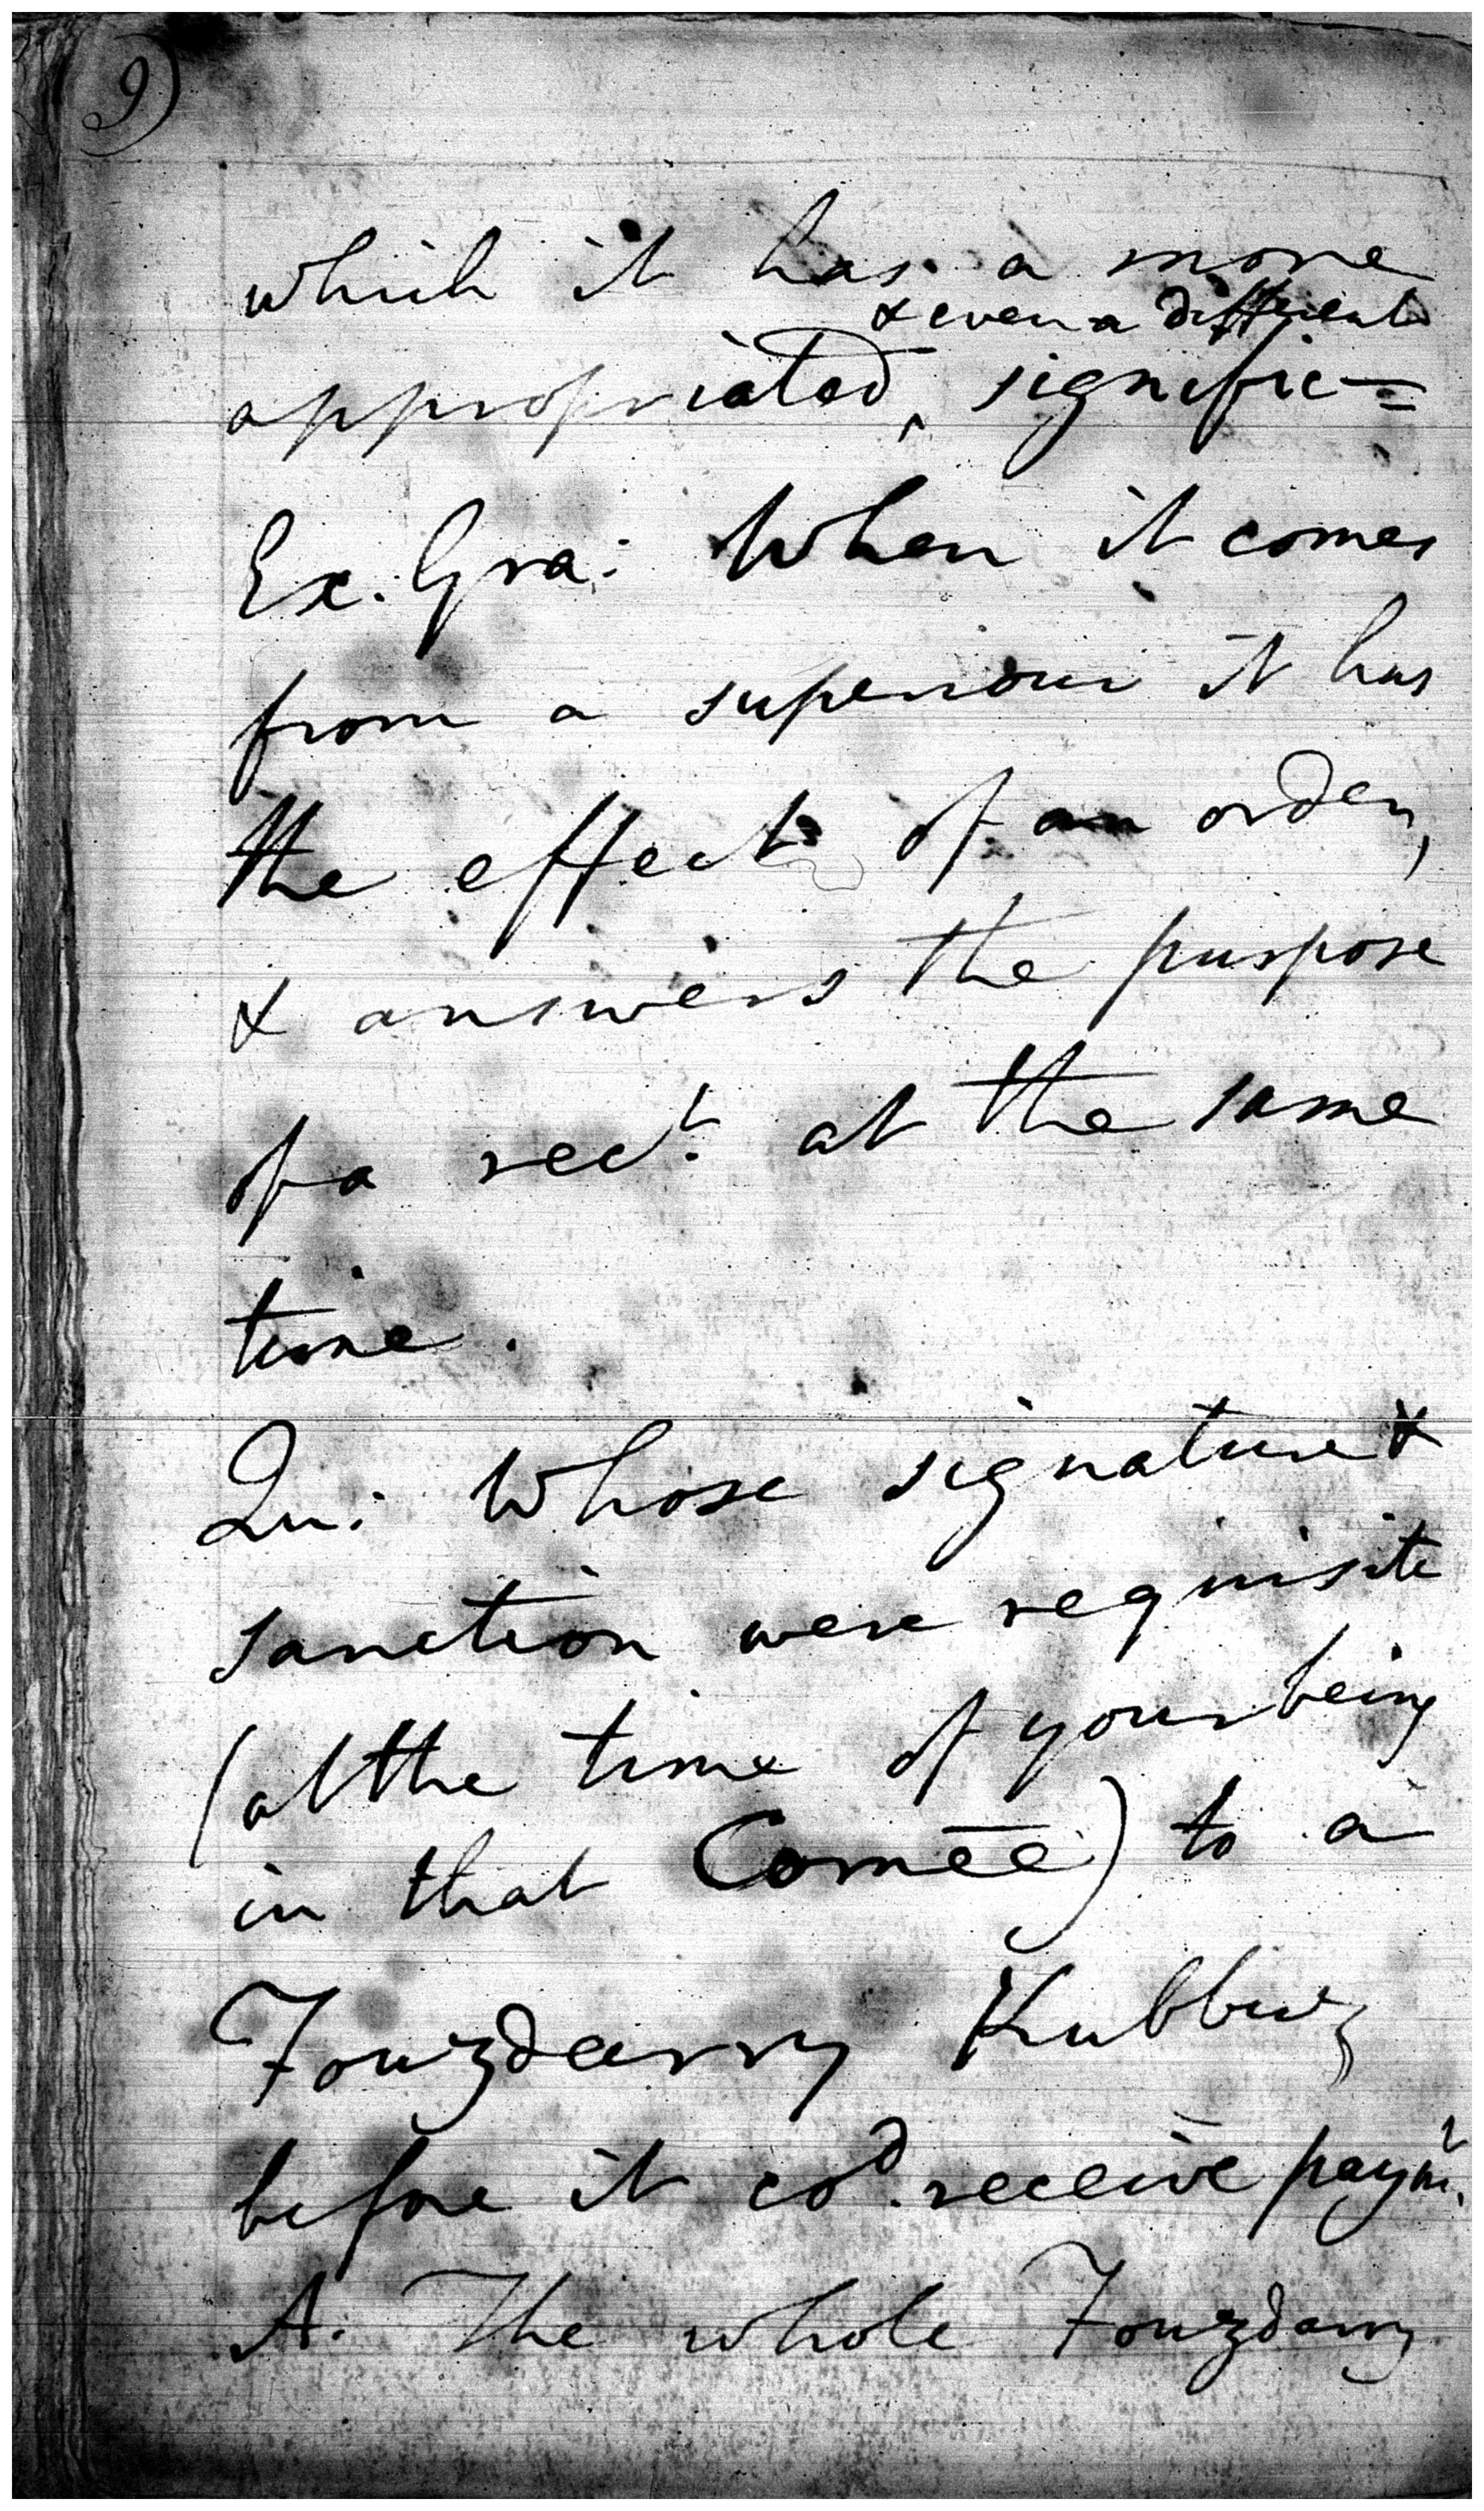 9)
which it has a more
& even a different
appropriated ^ signific=
Ex. Gra: When it comes
from a superiour it has
the effect of an order,
& answers the purpose
of a rect. at the same
time.
Qu: Whose signature &
sanction were requisite
(at the time of your being
in that Comēē) to a
Fouzdarry Kubbuz
before it cod. receive paymt.
A. The whole Fouzdarry